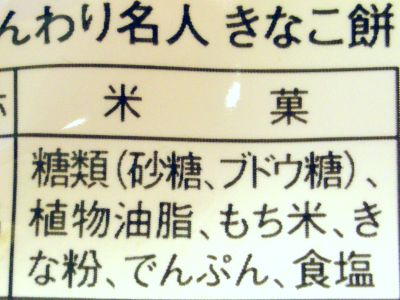 んわり名人 きなこ餅
米 菓
糖類(砂糖、ブドウ糖)、
植物油脂、もち米、き
な粉、でんぷん、食塩